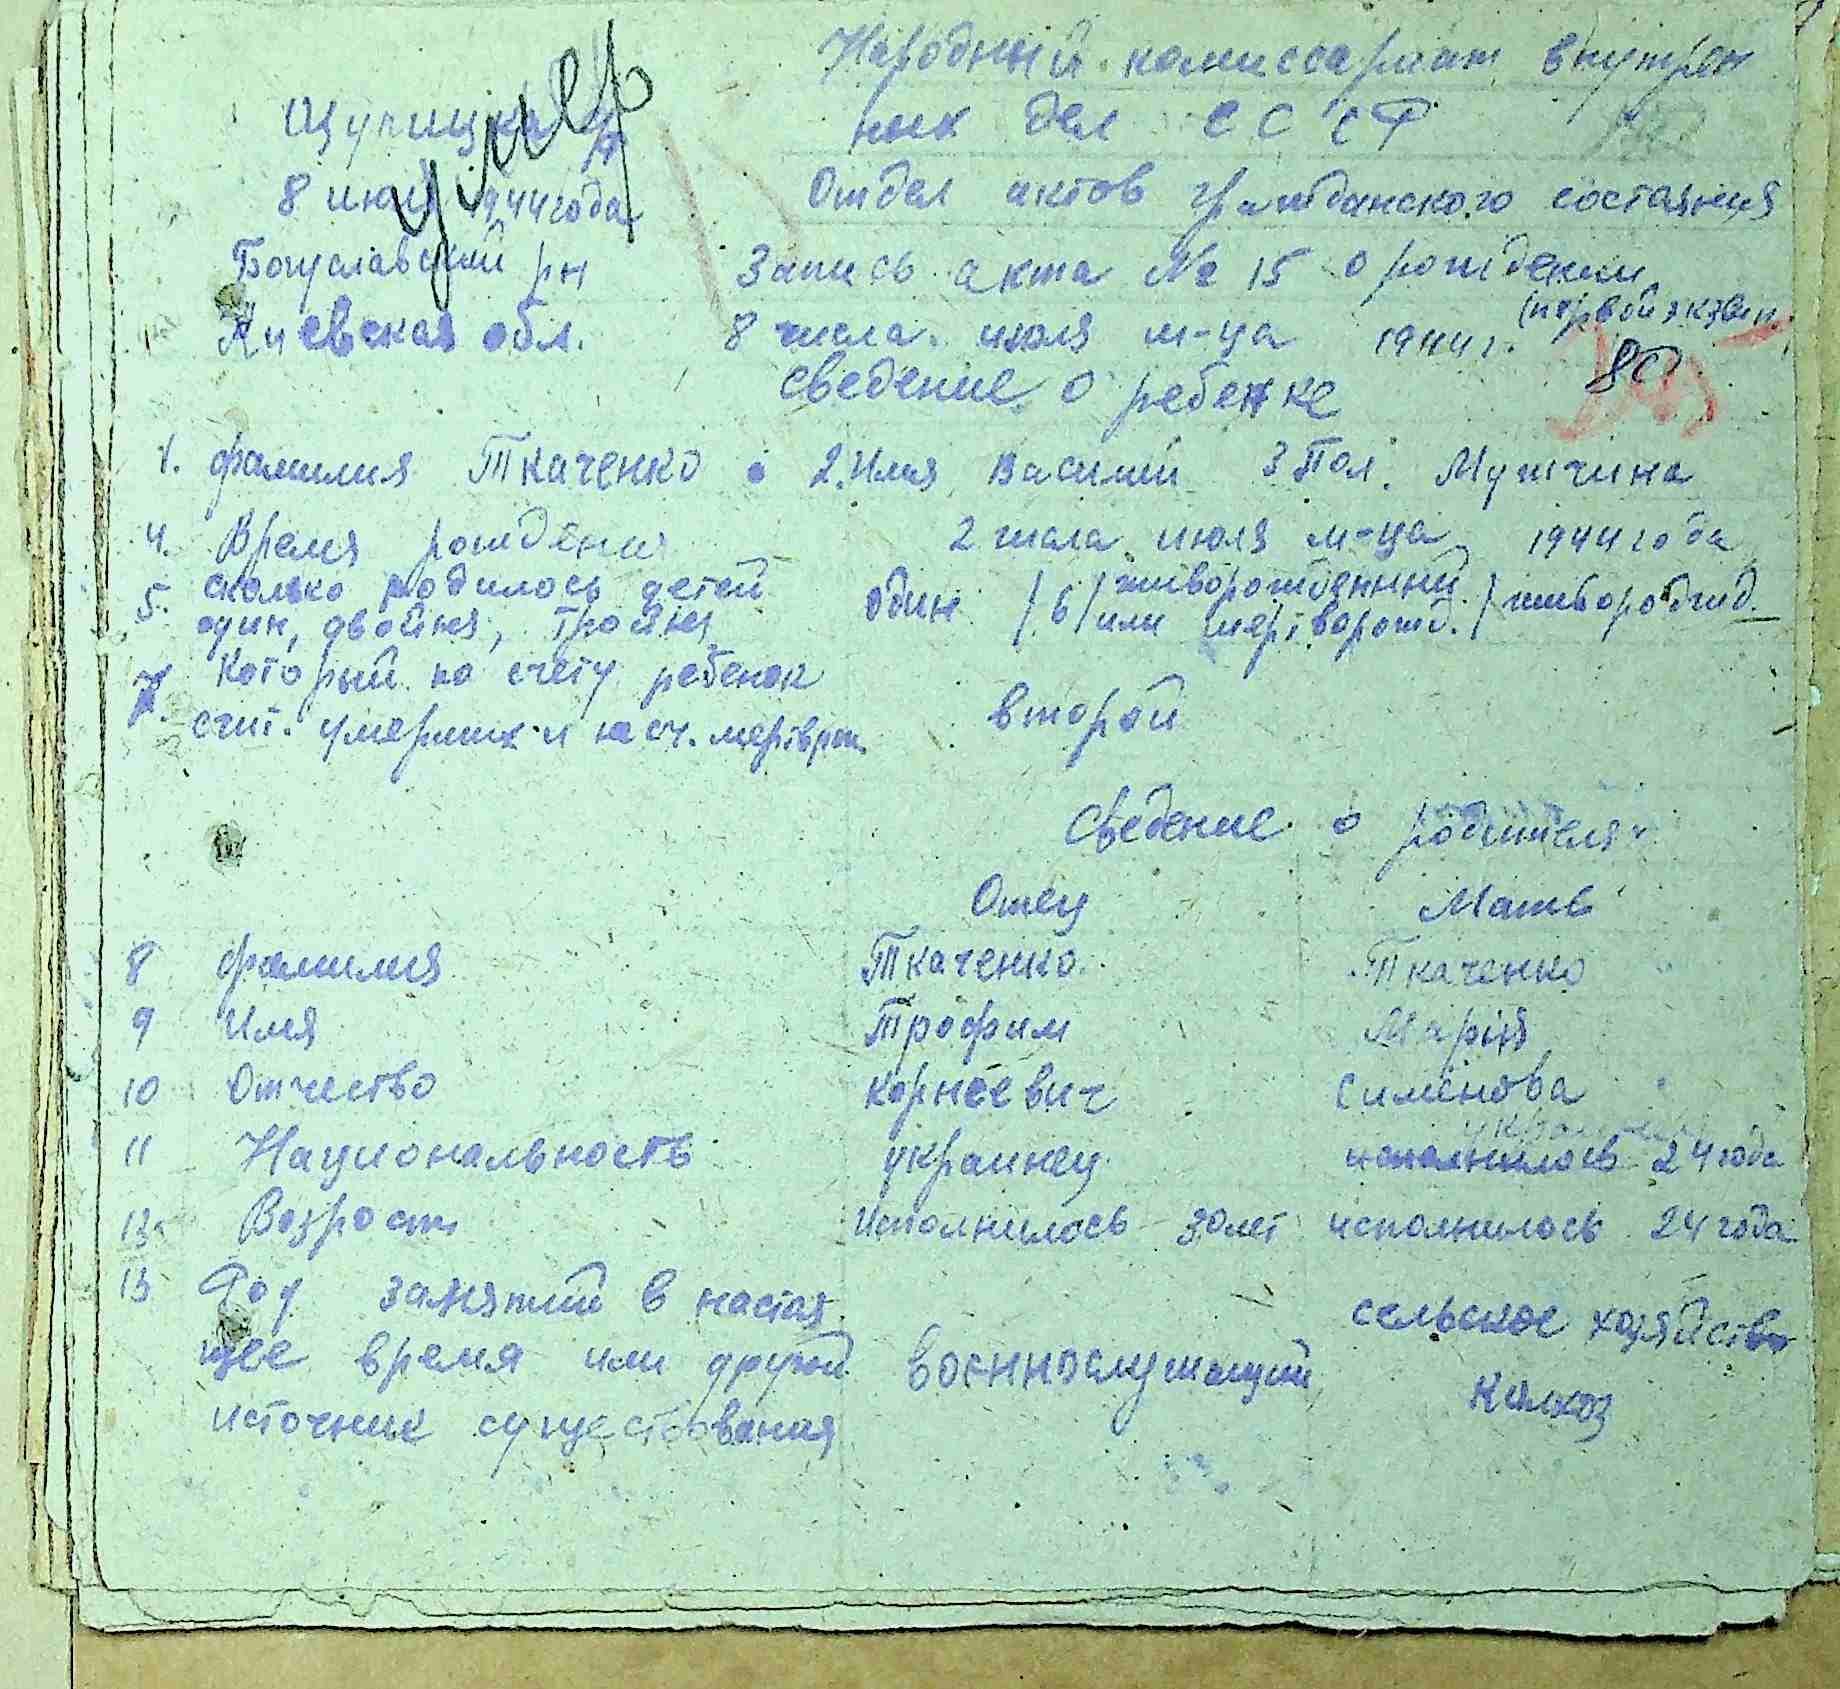 Народный комиссариат внутрен
умер
Щупицкая
них дел СССР
8 июля 1944 года
Отдел актов гражданского состаяния
Богуславский рн
Запись акта № 15 о рождении
(первой экземп.
Киевская обл.
8 числа июля м-ца 1944 г.
80
Сведение о ребенке
1. фамилия Ткаченко 2. Имя Василий 3 Пол. Мужчина
4. Время рождения 2 числа июля м-ца 1944 года
5. сколько родилось детей
один, двойня, тройня
один /6/ живорожденный
или мертворожд. / живорожд.
7. Который по счету ребенок
счит. умерших и не сч. мертврж.
второй
Сведение о родителях
Отец Мать
8 фамилия Ткаченко Ткаченко
9 Имя Трофим Марія
10 Отчество Корнеевич Сименова
11 Национальность украинец исполнилось 24 года
12 Возраст исполнилось 30 лет исполнилось 24 года
13 Род занятий в настоя
щее время или другой
источник существования
военнослужащий
сельское хозяйство
колхоз